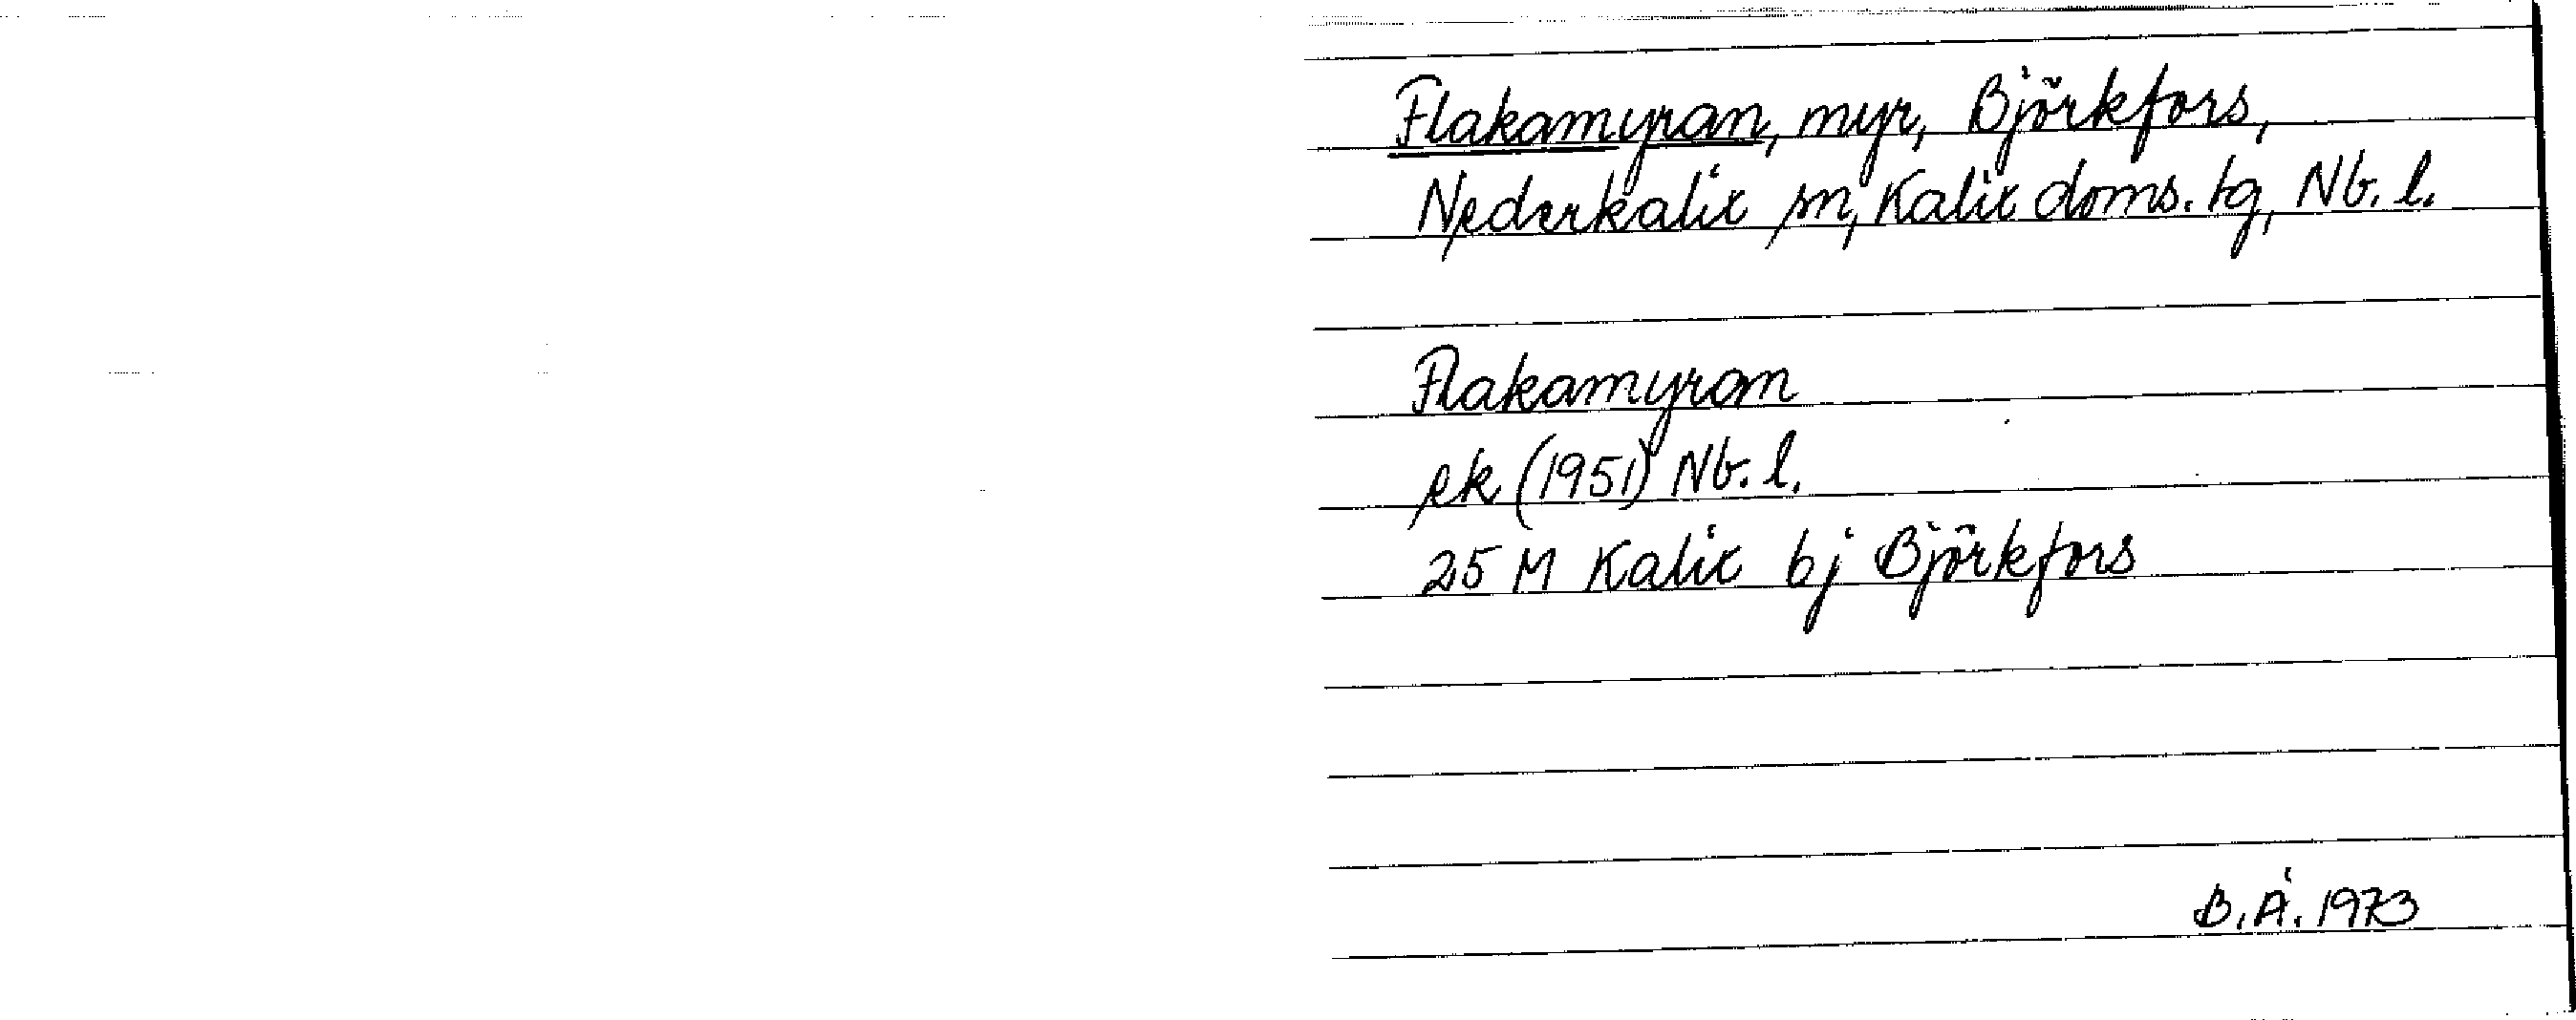 Flakamyran, myr, Björkfors,
Nederkalix sn, Kalix doms. tg, Nb. l.
Flakamyran
ek (1951) Nb. l.
25 M Kalix bj Björkfors
B. Å. 1973